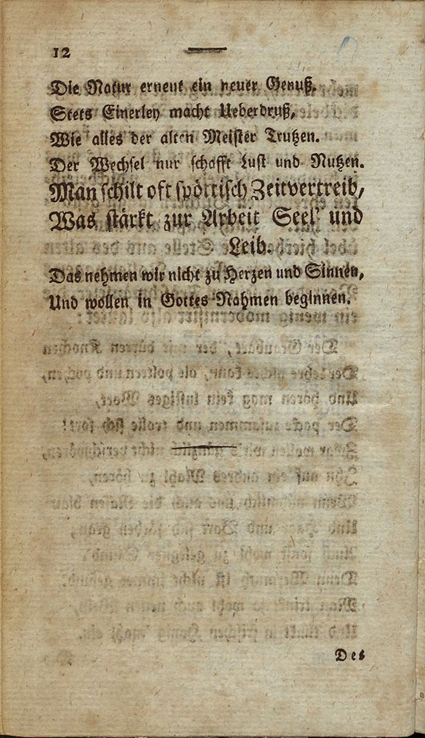 12
Die Natur erneut ein neuer Genuß,
Stets Einerley macht Ueberdruß,
Wie alles der alten Meister Trutzen.
Der Wechsel nur schafft Lust und Nutzen.
Man schilt oft spöttisch Zeitvertreib,
Was stärkt zur Arbeit Seel' und
Leib.
Das nehmen wir nicht zu Herzen und Sinnen,
Und wollen in Gottes Nahmen beginnen.
Des